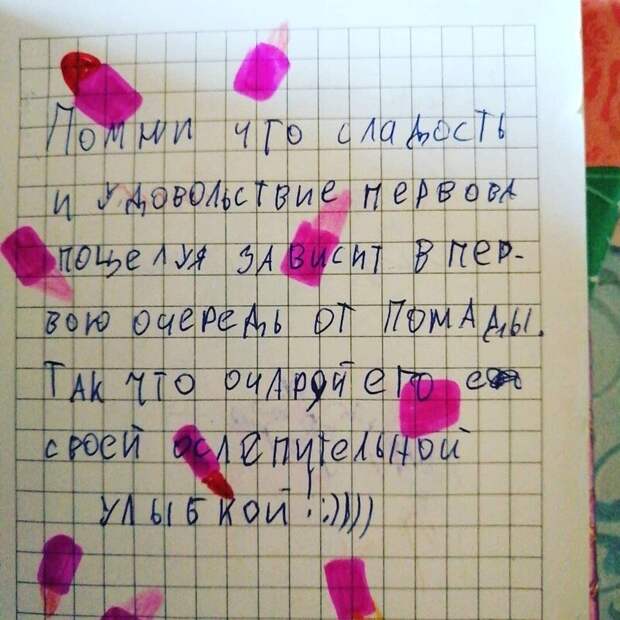 Помни что сладость
и удовольствие первова
поцелуя зависит в пер-
вою очередь от помады.
Так что очаруй его
своей ослепительной
улыбкой! :))))